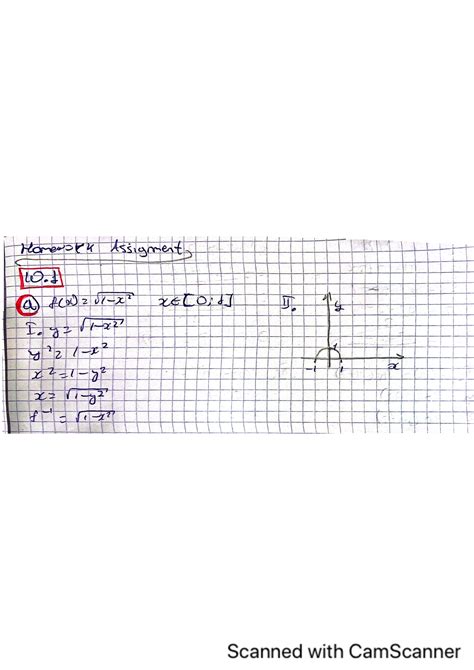 Homework Assigment
10.1
a) f(x) = √1-x² x∈[0;1]
I. y = √1-x²
y² = 1-x²
x² = 1-y²
x = √1-y²
f⁻¹ = √1-x²
II.
y
1
-1 1 x
Scanned with CamScanner